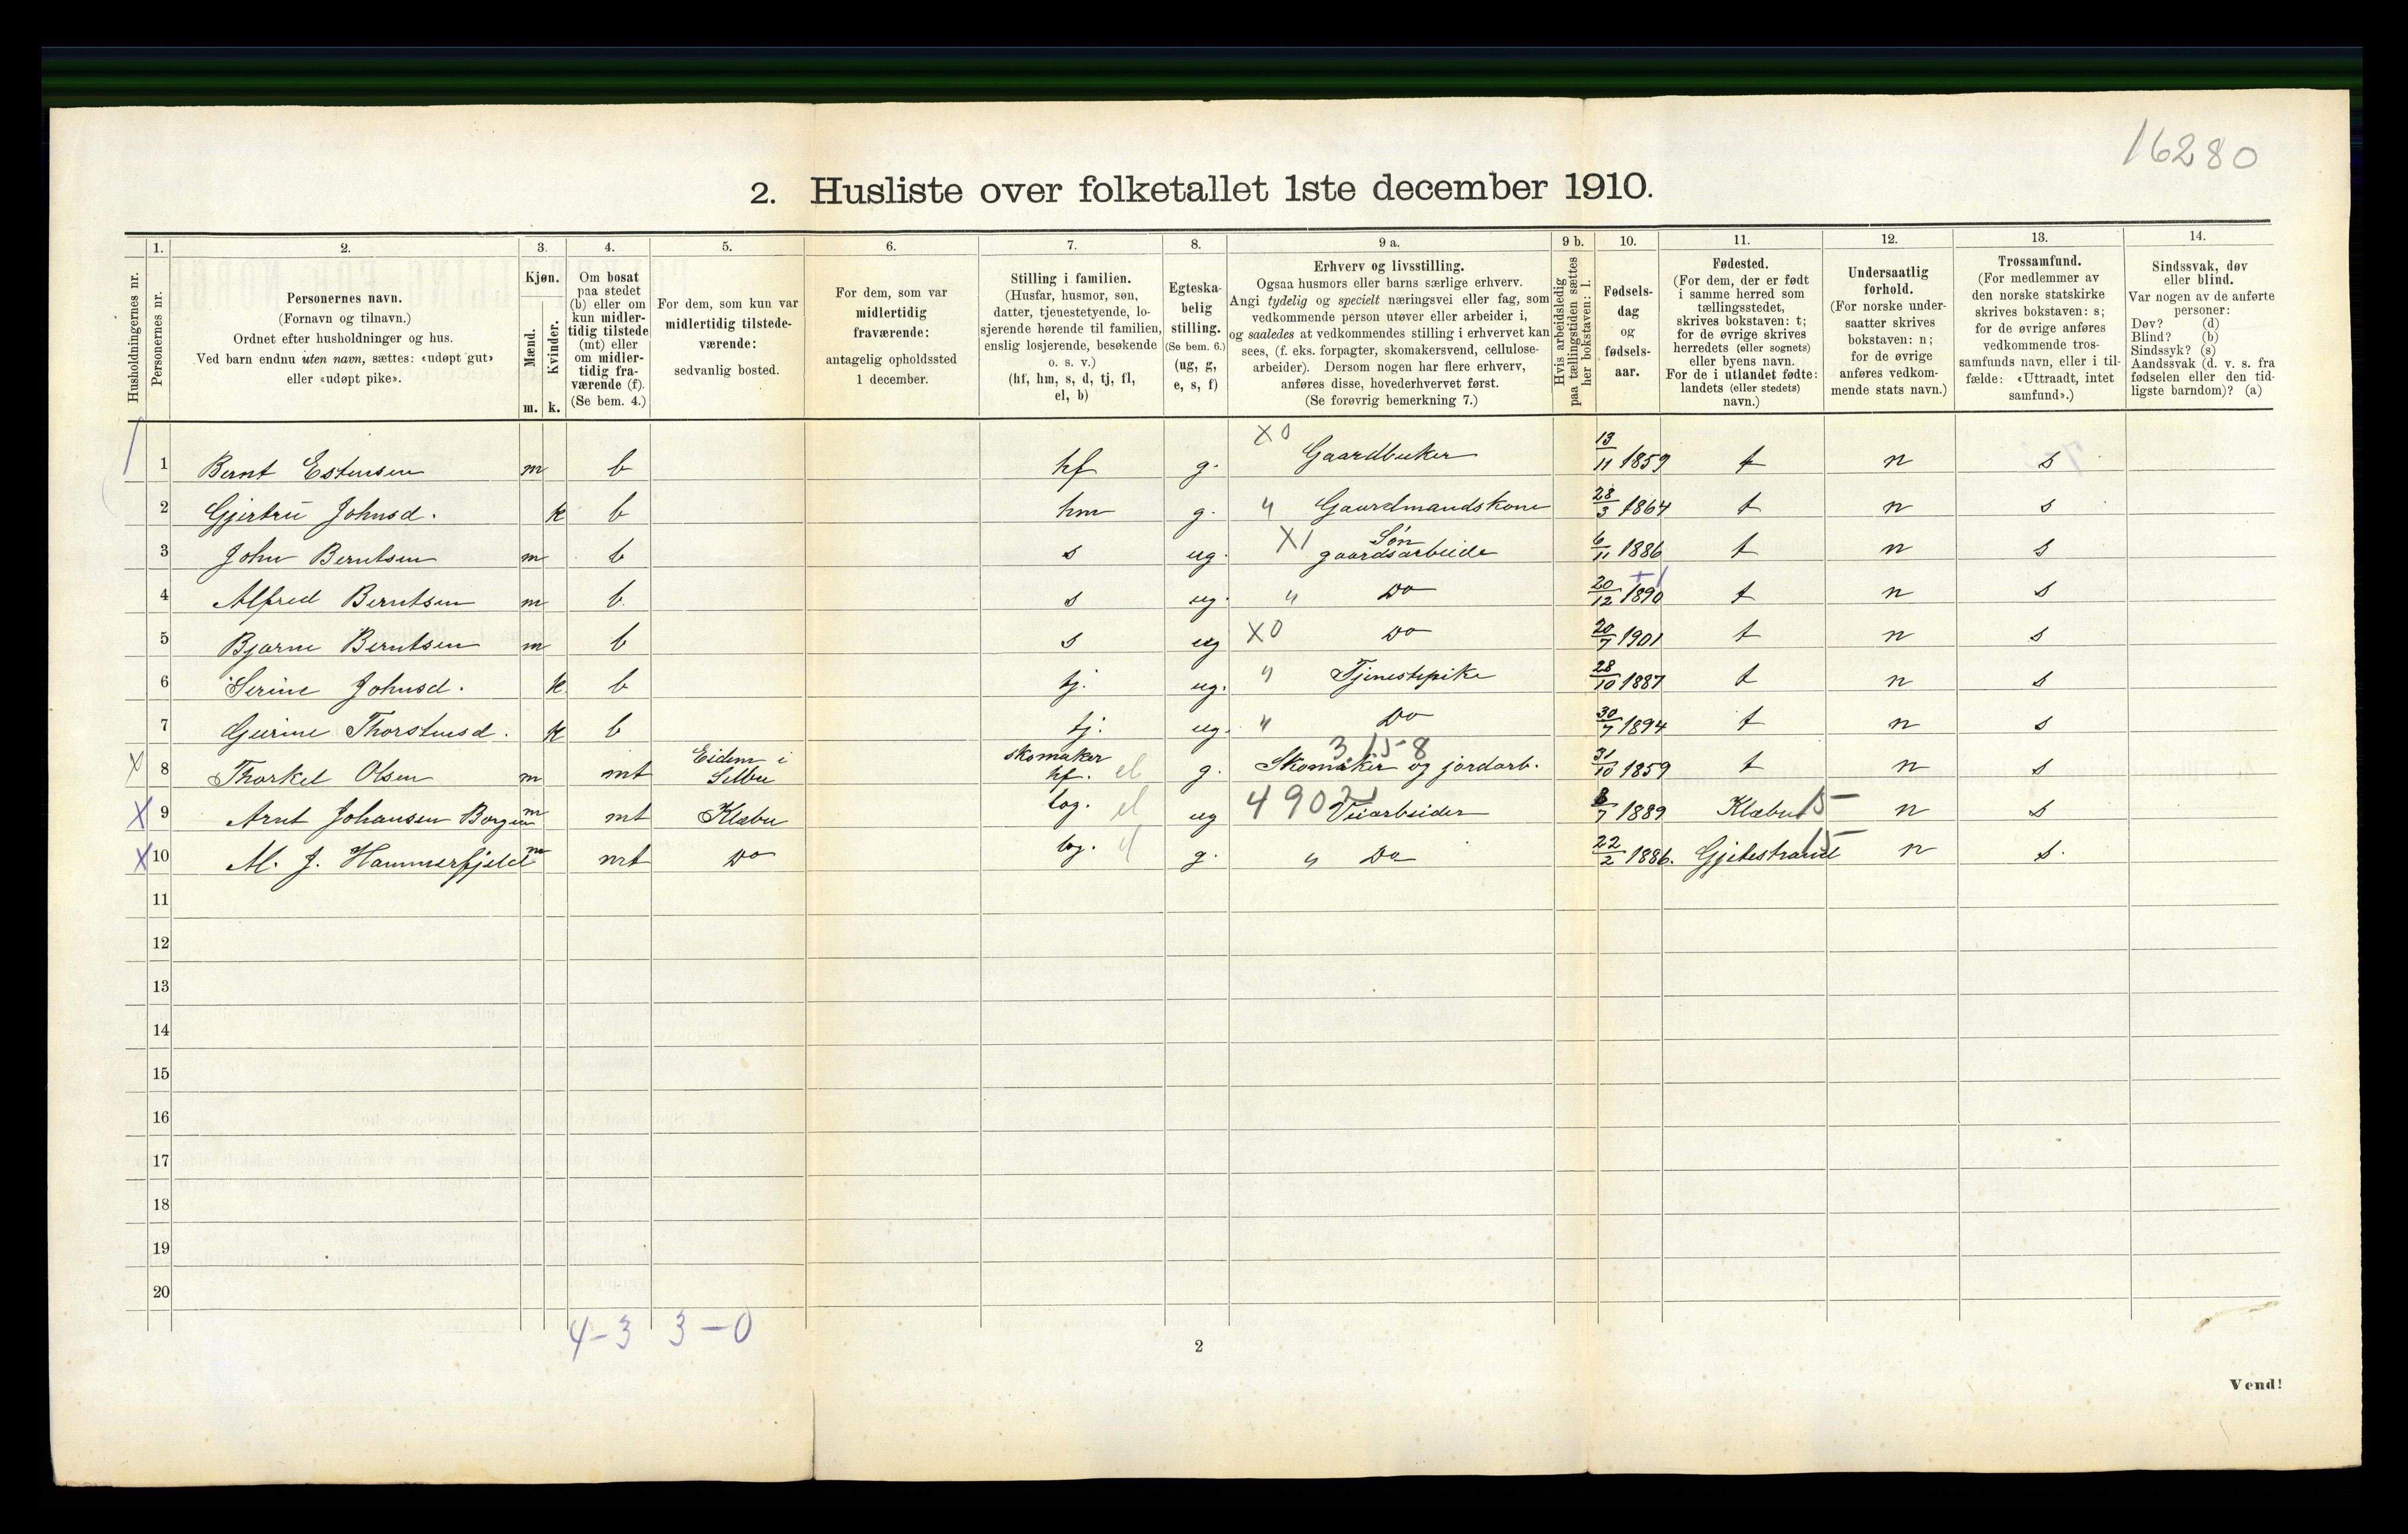 16280
2. Husliste over folketallet 1ste december 1910.
Husholdningernes nr.
1.
Personernes nr.
2.
Personernes navn.
(Fornavn og tilnavn.)
Ordnet efter husholdninger og hus.
Ved barn endnu uten navn, sættes: «udøpt gut»
eller «udøpt pike».
3.
Kjøn.
Mænd.
Kvinder.
m. k.
4.
Om bosat
paa stedet
(b) eller om
kun midler-
tidig tilstede
(mt) eller
om midler-
tidig fra-
værende (f).
(Se bem. 4.)
5.
For dem, som kun var
midlertidig tilstede-
værende:
sedvanlig bosted.
6.
For dem, som var
midlertidig
fraværende:
antagelig opholdssted
1 december.
7.
Stilling i familien.
(Husfar, husmor, søn,
datter, tjenestetyende, lo-
sjerende hørende til familien,
enslig losjerende, besøkende
o. s. v.)
(hf, hm, s, d, tj, fl,
el, b)
8.
Egteska-
belig
stilling.
(Se bem. 6.)
(ug, g,
e, s, f)
9 a.
Erhverv og livsstilling.
Ogsaa husmors eller barns særlige erhverv.
Angi tydelig og specielt næringsvei eller fag, som
vedkommende person utøver eller arbeider i,
og saaledes at vedkommendes stilling i erhvervet kan
sees, (f. eks. forpagter, skomakersvend, cellulose-
arbeider). Dersom nogen har flere erhverv,
anføres disse, hovederhvervet først.
(Se forøvrig bemerkning 7.)
9 b.
Hvis arbeidsledig
paa tællingstiden sættes
her bokstaven: l.
10.
Fødsels-
dag
og
fødsels-
aar.
11.
Fødested.
(For dem, der er født
i samme herred som
tællingsstedet,
skrives bokstaven: t;
for de øvrige skrives
herredets (eller sognets)
eller byens navn.
For de i utlandet fødte:
landets (eller stedets)
navn.)
12.
Undersaatlig
forhold.
(For norske under-
saatter skrives
bokstaven: n;
for de øvrige
anføres vedkom-
mende stats navn.)
13.
Trossamfund.
(For medlemmer av
den norske statskirke
skrives bokstaven: s;
for de øvrige anføres
vedkommende tros-
samfunds navn, eller i til-
fælde: «Uttraadt, intet
samfund».)
14.
Sindssvak, døv
eller blind.
Var nogen av de anførte
personer:
Døv? (d)
Blind? (b)
Sindssyk? (s)
Aandssvak (d. v. s. fra
fødselen eller den tid-
ligste barndom)? (a)
1 Bernt Estensen m b hf g. X0 Gaardbruker 13/11 1859 t n s
2 Gjertru Johnsd. k b hm g. " Gaardmandskone 28/3 1864 t n s
3 John Berntsen m b s ug. X1 Søn gaardsarbeide 6/11 1886 t n s
4 Alfred Berntsen m b s ug. " Do 20/12 1890 t n s
5 Bjarne Berntsen m b s ug X0 Do 20/7 1901 t n s
6 Serine Johnsd. k b tj. ug. " Tjenestepike 28/10 1887 t n s
7 Gurine Thorstensd. k b tj. ug. " Do 30/7 1894 t n s
X 8 Thorkel Olsen m mt Eidem i Selbu skomaker hf. el g. 3 15-8 Skomaker og jordarb. 31/10 1859 t n s
X 9 Arnt Johansen Borgen m mt Klæbu log. el ug 4902 Veiarbeider 8/7 1889 Klæbu 15 n s
X 10 M. J. Hammerfjeld m mt Do log. el g. " Do 22/2 1886. Gjetestrand 15 n s.
11
12
13
14
15
16
17
18
19
20
4-3 3-0
2
Vend!